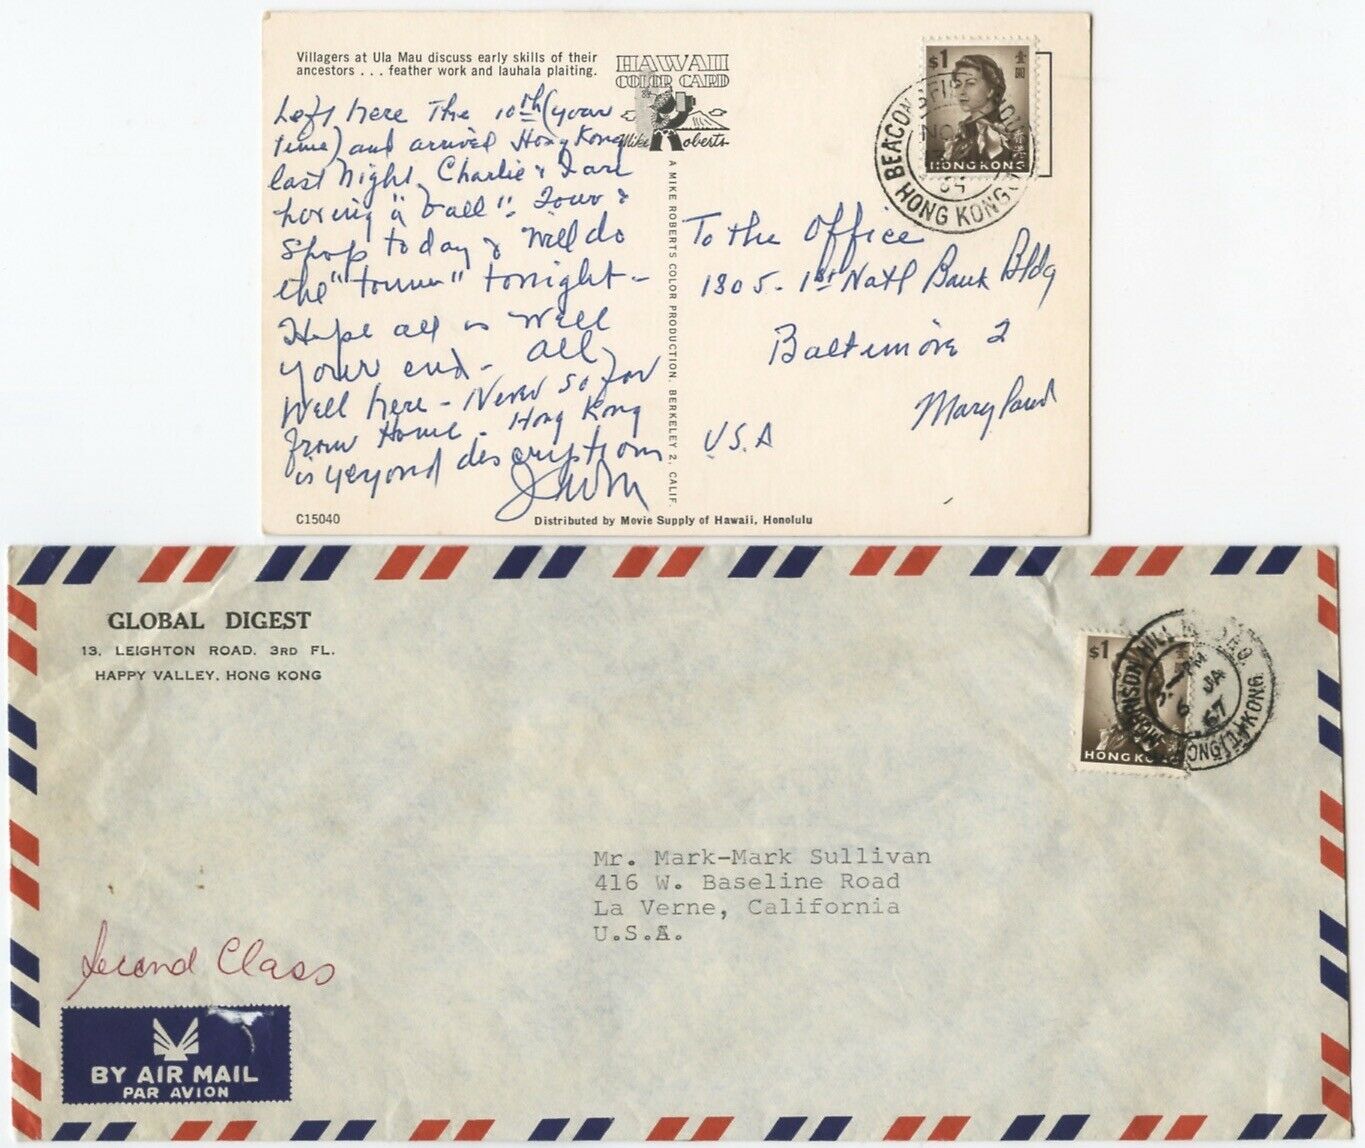 Villagers at Ula Mau discuss early skills of their
ancestors . . . feather work and lauhala plaiting.
HAWAII
COLOR CARD
Mike Roberts
$1
HONG KONG
BEACONSFIELD HOUSE
NO
64
HONG KONG
Left here the 10th (your
time) and arrived Hong Kong
last night. Charlie & I are
having "a ball". Tour &
Shop today & will do
the "town" tonight -
Hope all is well
your end - all
well here - Never so far
from Home - Hong Kong
is yeyond descriptions
A MIKE ROBERTS COLOR PRODUCTION, BERKELEY 2, CALIF.
To the Office
1805 - 1st Natl Bank Bldg
Baltimore 2
Maryland
U.S.A
C15040
Distributed by Movie Supply of Hawaii, Honolulu
GLOBAL DIGEST
13, LEIGHTON ROAD, 3RD FL.
HAPPY VALLEY, HONG KONG
$1
HONG KONG
MORRISON HILL
PM
6 JA
67
HONG KONG
Mr. Mark-Mark Sullivan
416 W. Baseline Road
La Verne, California
U.S.A.
Second Class
BY AIR MAIL
PAR AVION